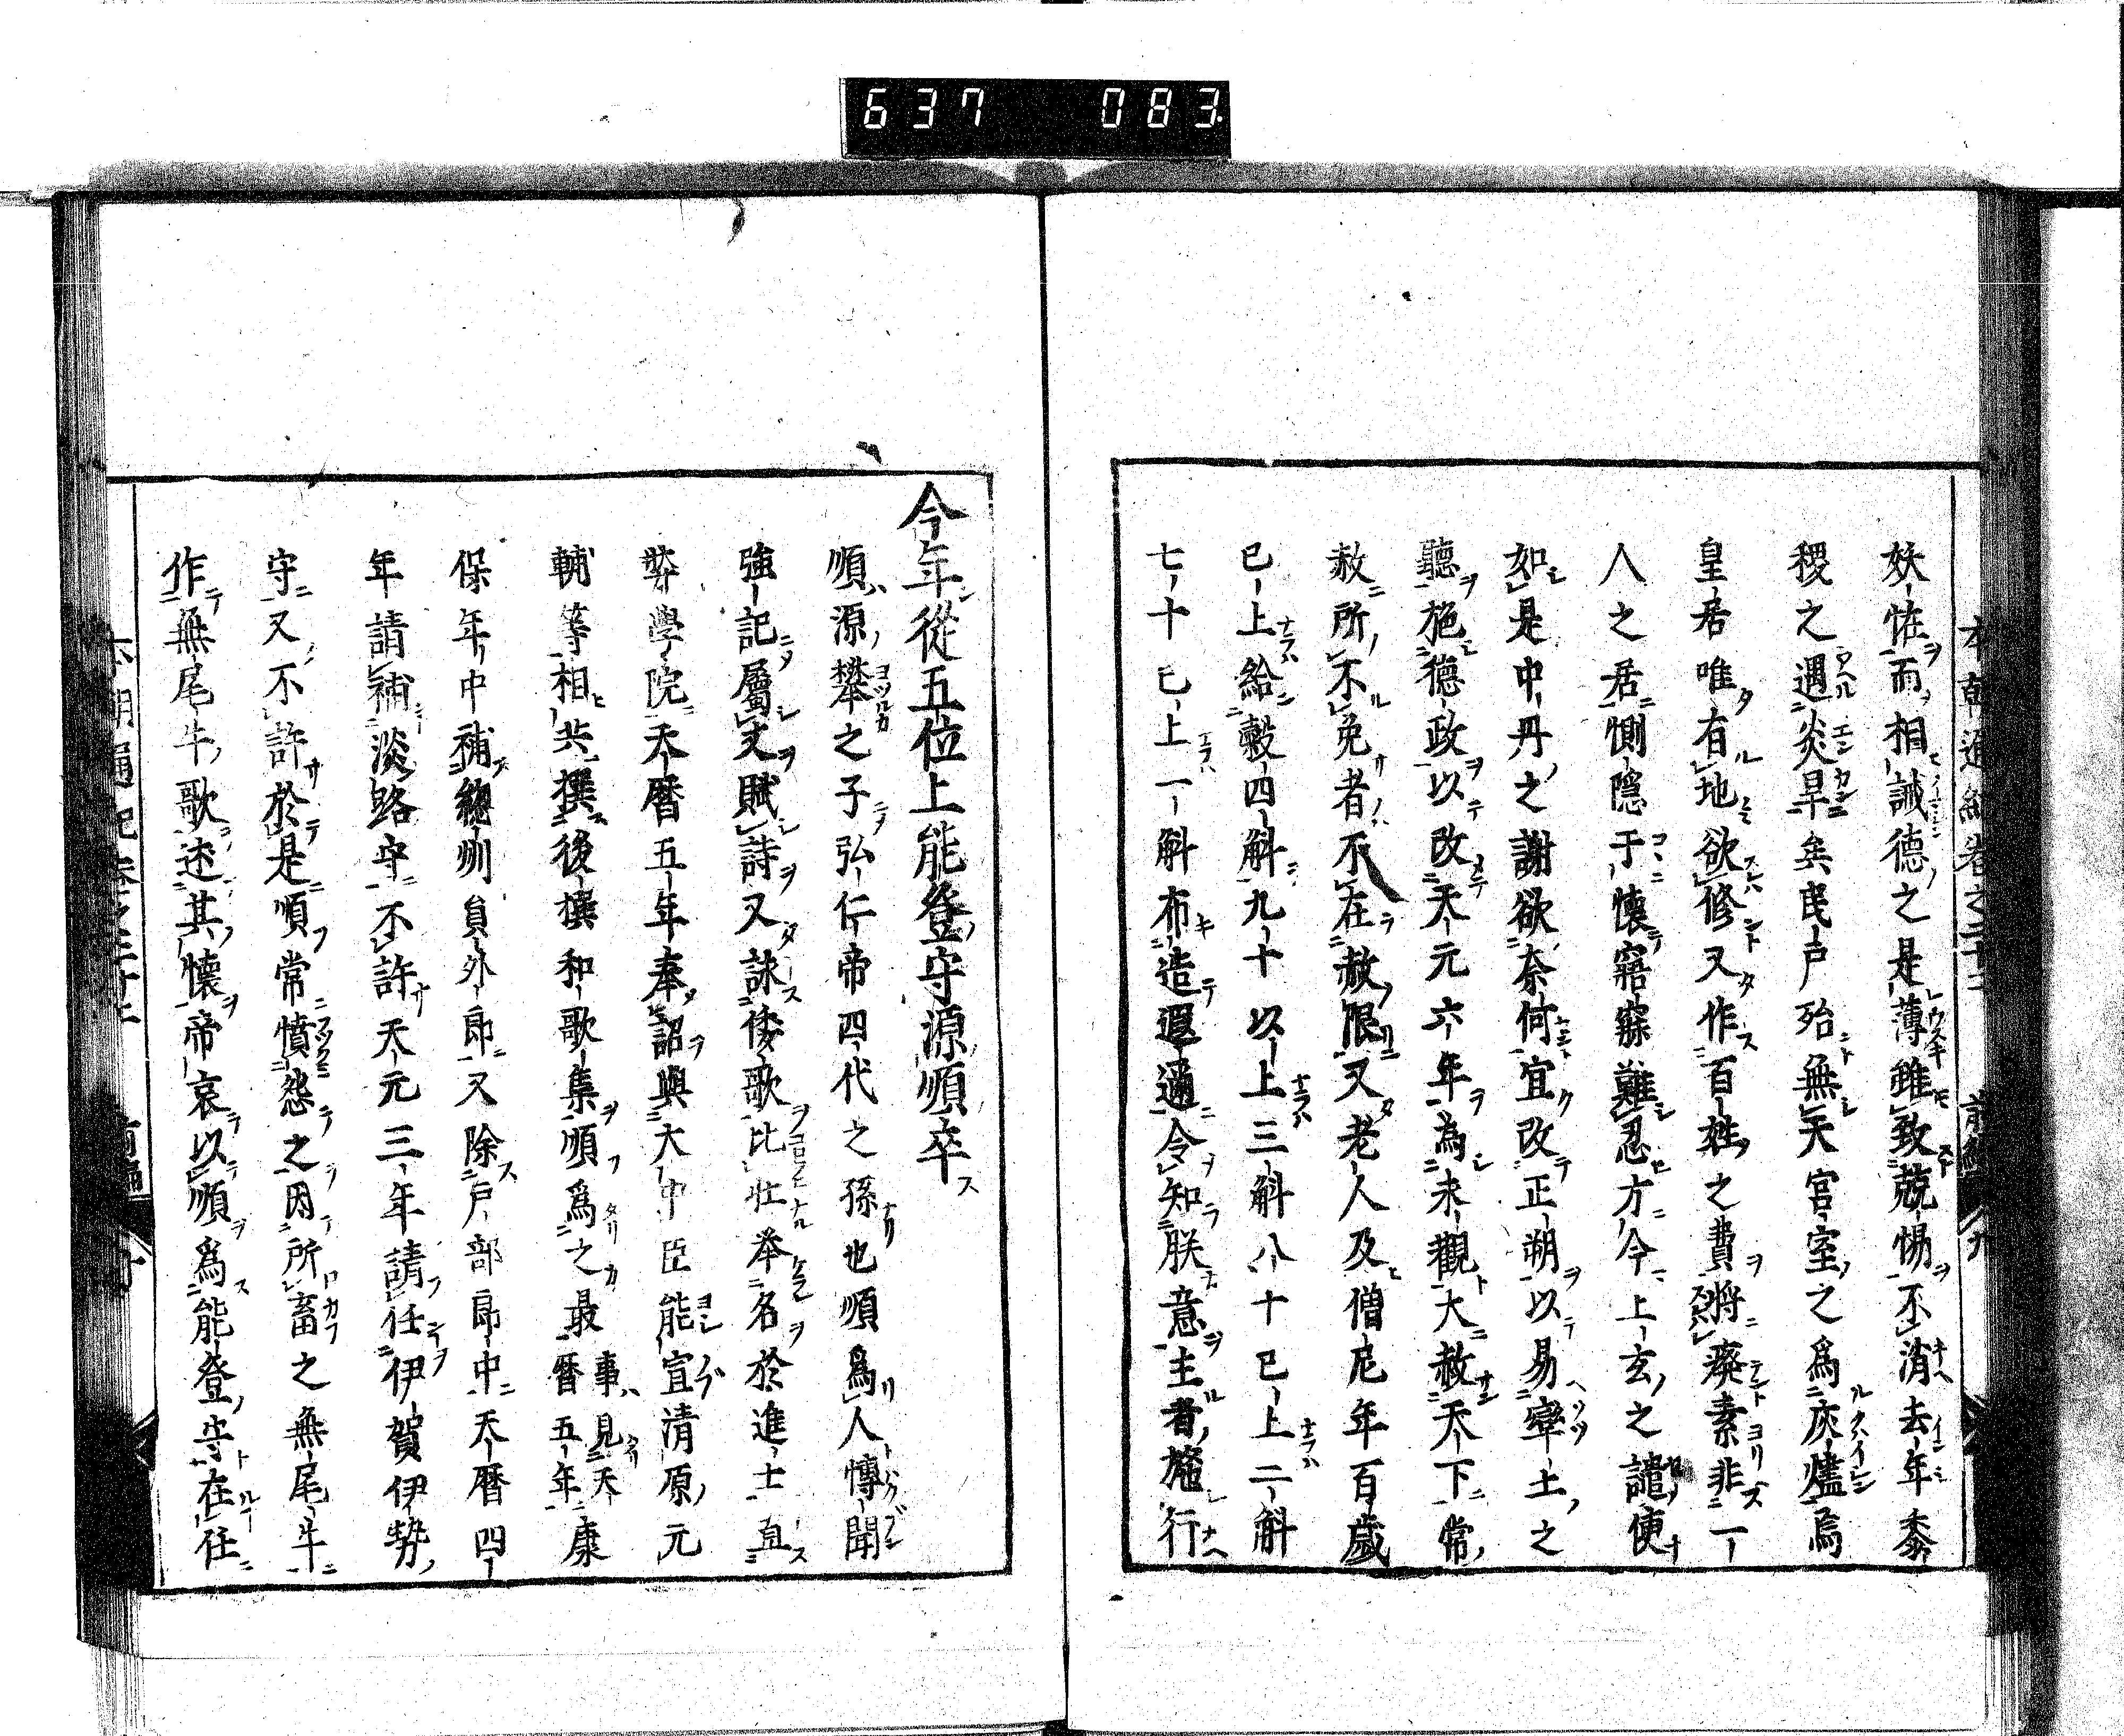 637 083
妖怪而相誡德之是薄雖致兢惕不消去年黍
稷之遇炎旱矣民戸殆無天官室之爲灰燼焉
皇居唯有地欲修又作百姓之費將癈素非一
人之居惻隠于懐寤寐難忍方今上玄之譴便
如是中丹之謝欲奈何宜改正朔以易率土之
聽施德政以改天元六年為未觀大赦天下常
赦所不免者不在赦限又老人及僧尼年百歳
已上給穀四斛九十以上三斛八十已上二斛
七十已上一斛布造遐邇令知朕意主者施行
今年從五位上能登守源順卒
順源攀之子弘仁帝四代之孫也順爲人愽聞
強記屬文賦詩又詠倭歌比壮举名於進士直
弉學院天暦五年奉詔與大中臣能宣清原元
輔等相共撰後撰和歌集順爲之最事見天暦五年康
保年中補總州員外郎又除戸部郎中天暦四
年請補淡路守不許天元三年請任伊賀伊勢
守又不許於是順常憤怨之因所畜之無尾牛
作無尾牛歌述其懐帝哀以順爲能登守在任